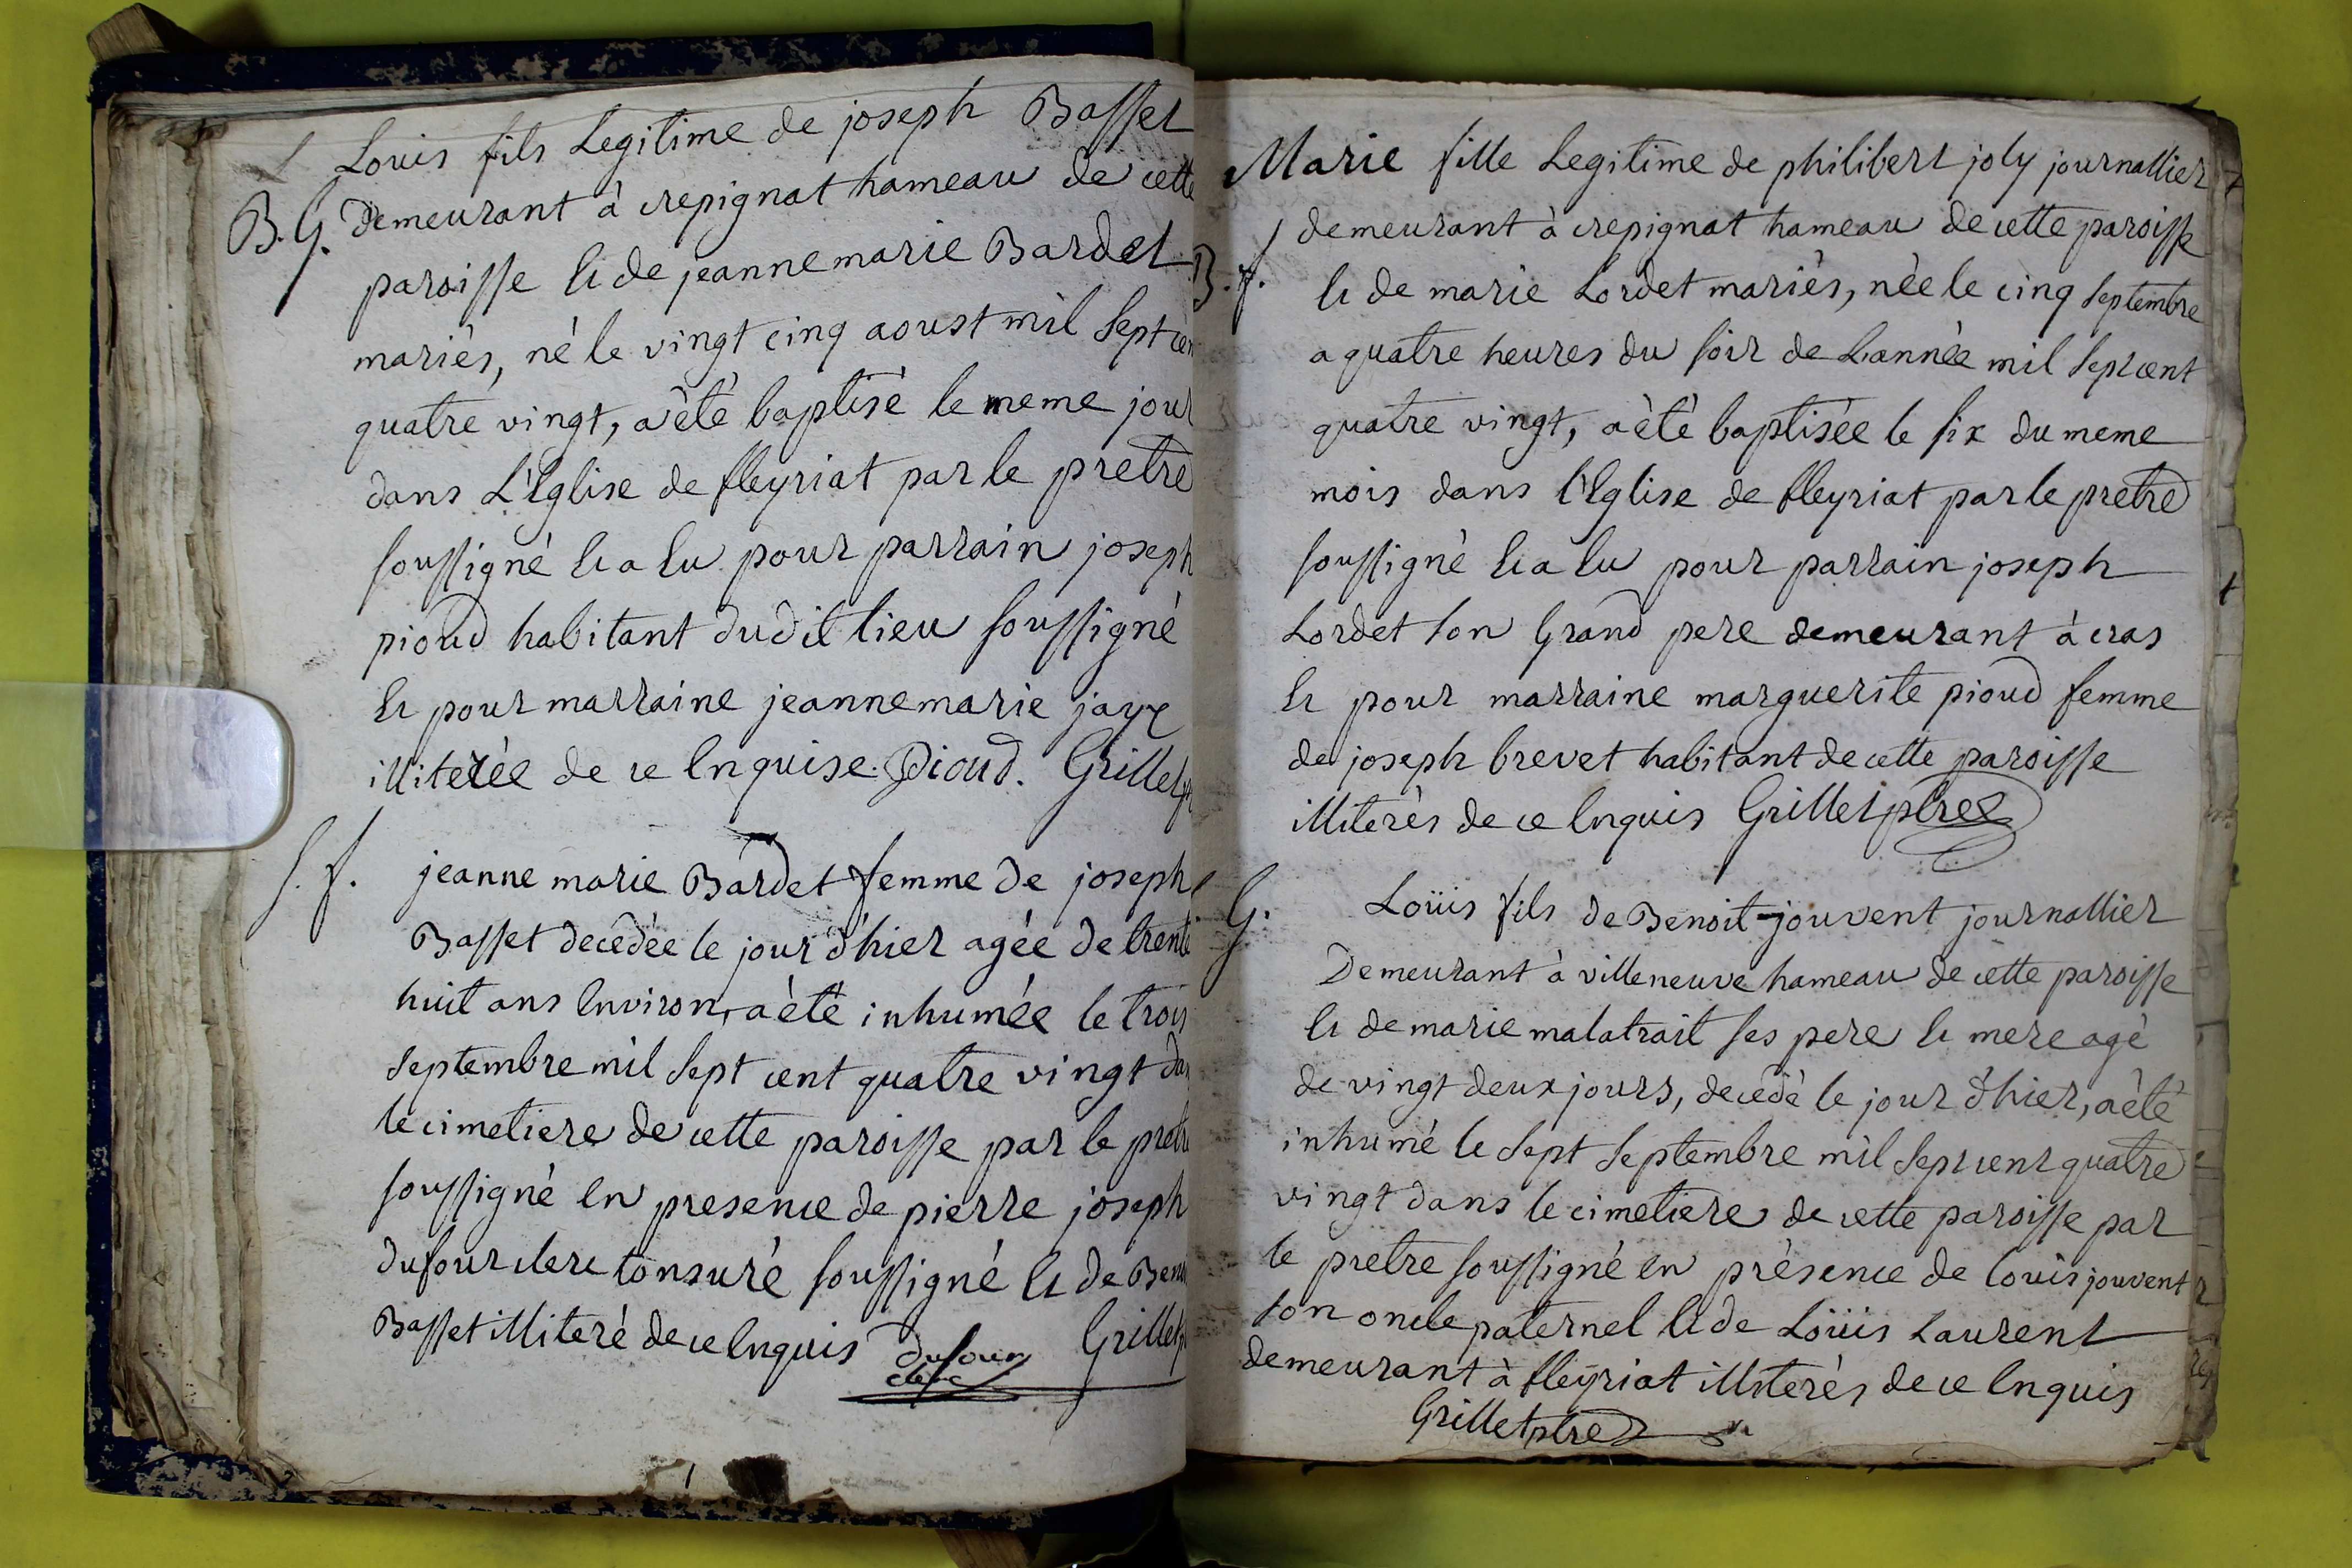 Louis fils Legitime de joseph Basset
B. G. Demeurant à crepignat hameau de cette
paroisse Et de jeanne marie Bardet
mariès, nè le vingt cinq aoust mil Sept cen
quatre vingt, a ètè baptisè le meme jour
dans L'Eglise de fleyriat par le pretre
soussignè Et a Eu pour parrain joseph
pioud habitant dudit lieu soussignè
Et pour marraine jeanne marie jaye
illiterèe de ce Enquise. Pioud. Grillet
S. f. jeanne marie Bardet femme de joseph
Basset decèdèe le jour d'hier agèe de trente
huit ans Environ, a ètè inhumèe le trois
Septembre mil Sept cent quatre vingt dan
le cimetiere de cette paroisse par le pretre
soussignè En presence de pierre joseph
dufour clerc tonsurè soussignè Et de Beno
Basset illiterè de ce Enquis dufour clerc Grillet
Marie fille Legitime de philibert joly journallier
demeurant à crepignat hameau de cette paroisse
B. f. Et de marie Lordet mariès, nèe le cinq Septembre
a quatre heures du soir de L'annèe mil Sept cent
quatre vingt, a ètè baptisèe le six du meme
mois dans l'Eglise de fleyriat par le pretre
soussignè Et a Eu pour parrain joseph
Lordet son Grand pere demeurant à cras
Et pour marraine marguerite pioud femme
de joseph brevet habitant de cette paroisse
illiterès de ce Enquis Grillet ptre
S. G. Loüis fils de Benoit jouvent journallier
Demeurant à villeneuve hameau de cette paroisse
Et de marie malatrait ses pere Et mere agè
de vingt deux jours, decèdè le jour d'hier, a ètè
inhumè le Sept Septembre mil Sept cent quatre
vingt dans le cimetiere de cette paroisse par
le pretre soussignè En prèsence de louis jouvent
son oncle paternel Et de Loüis Laurent
demeurant à fleyriat illiterès de ce Enquis
Grillet ptre